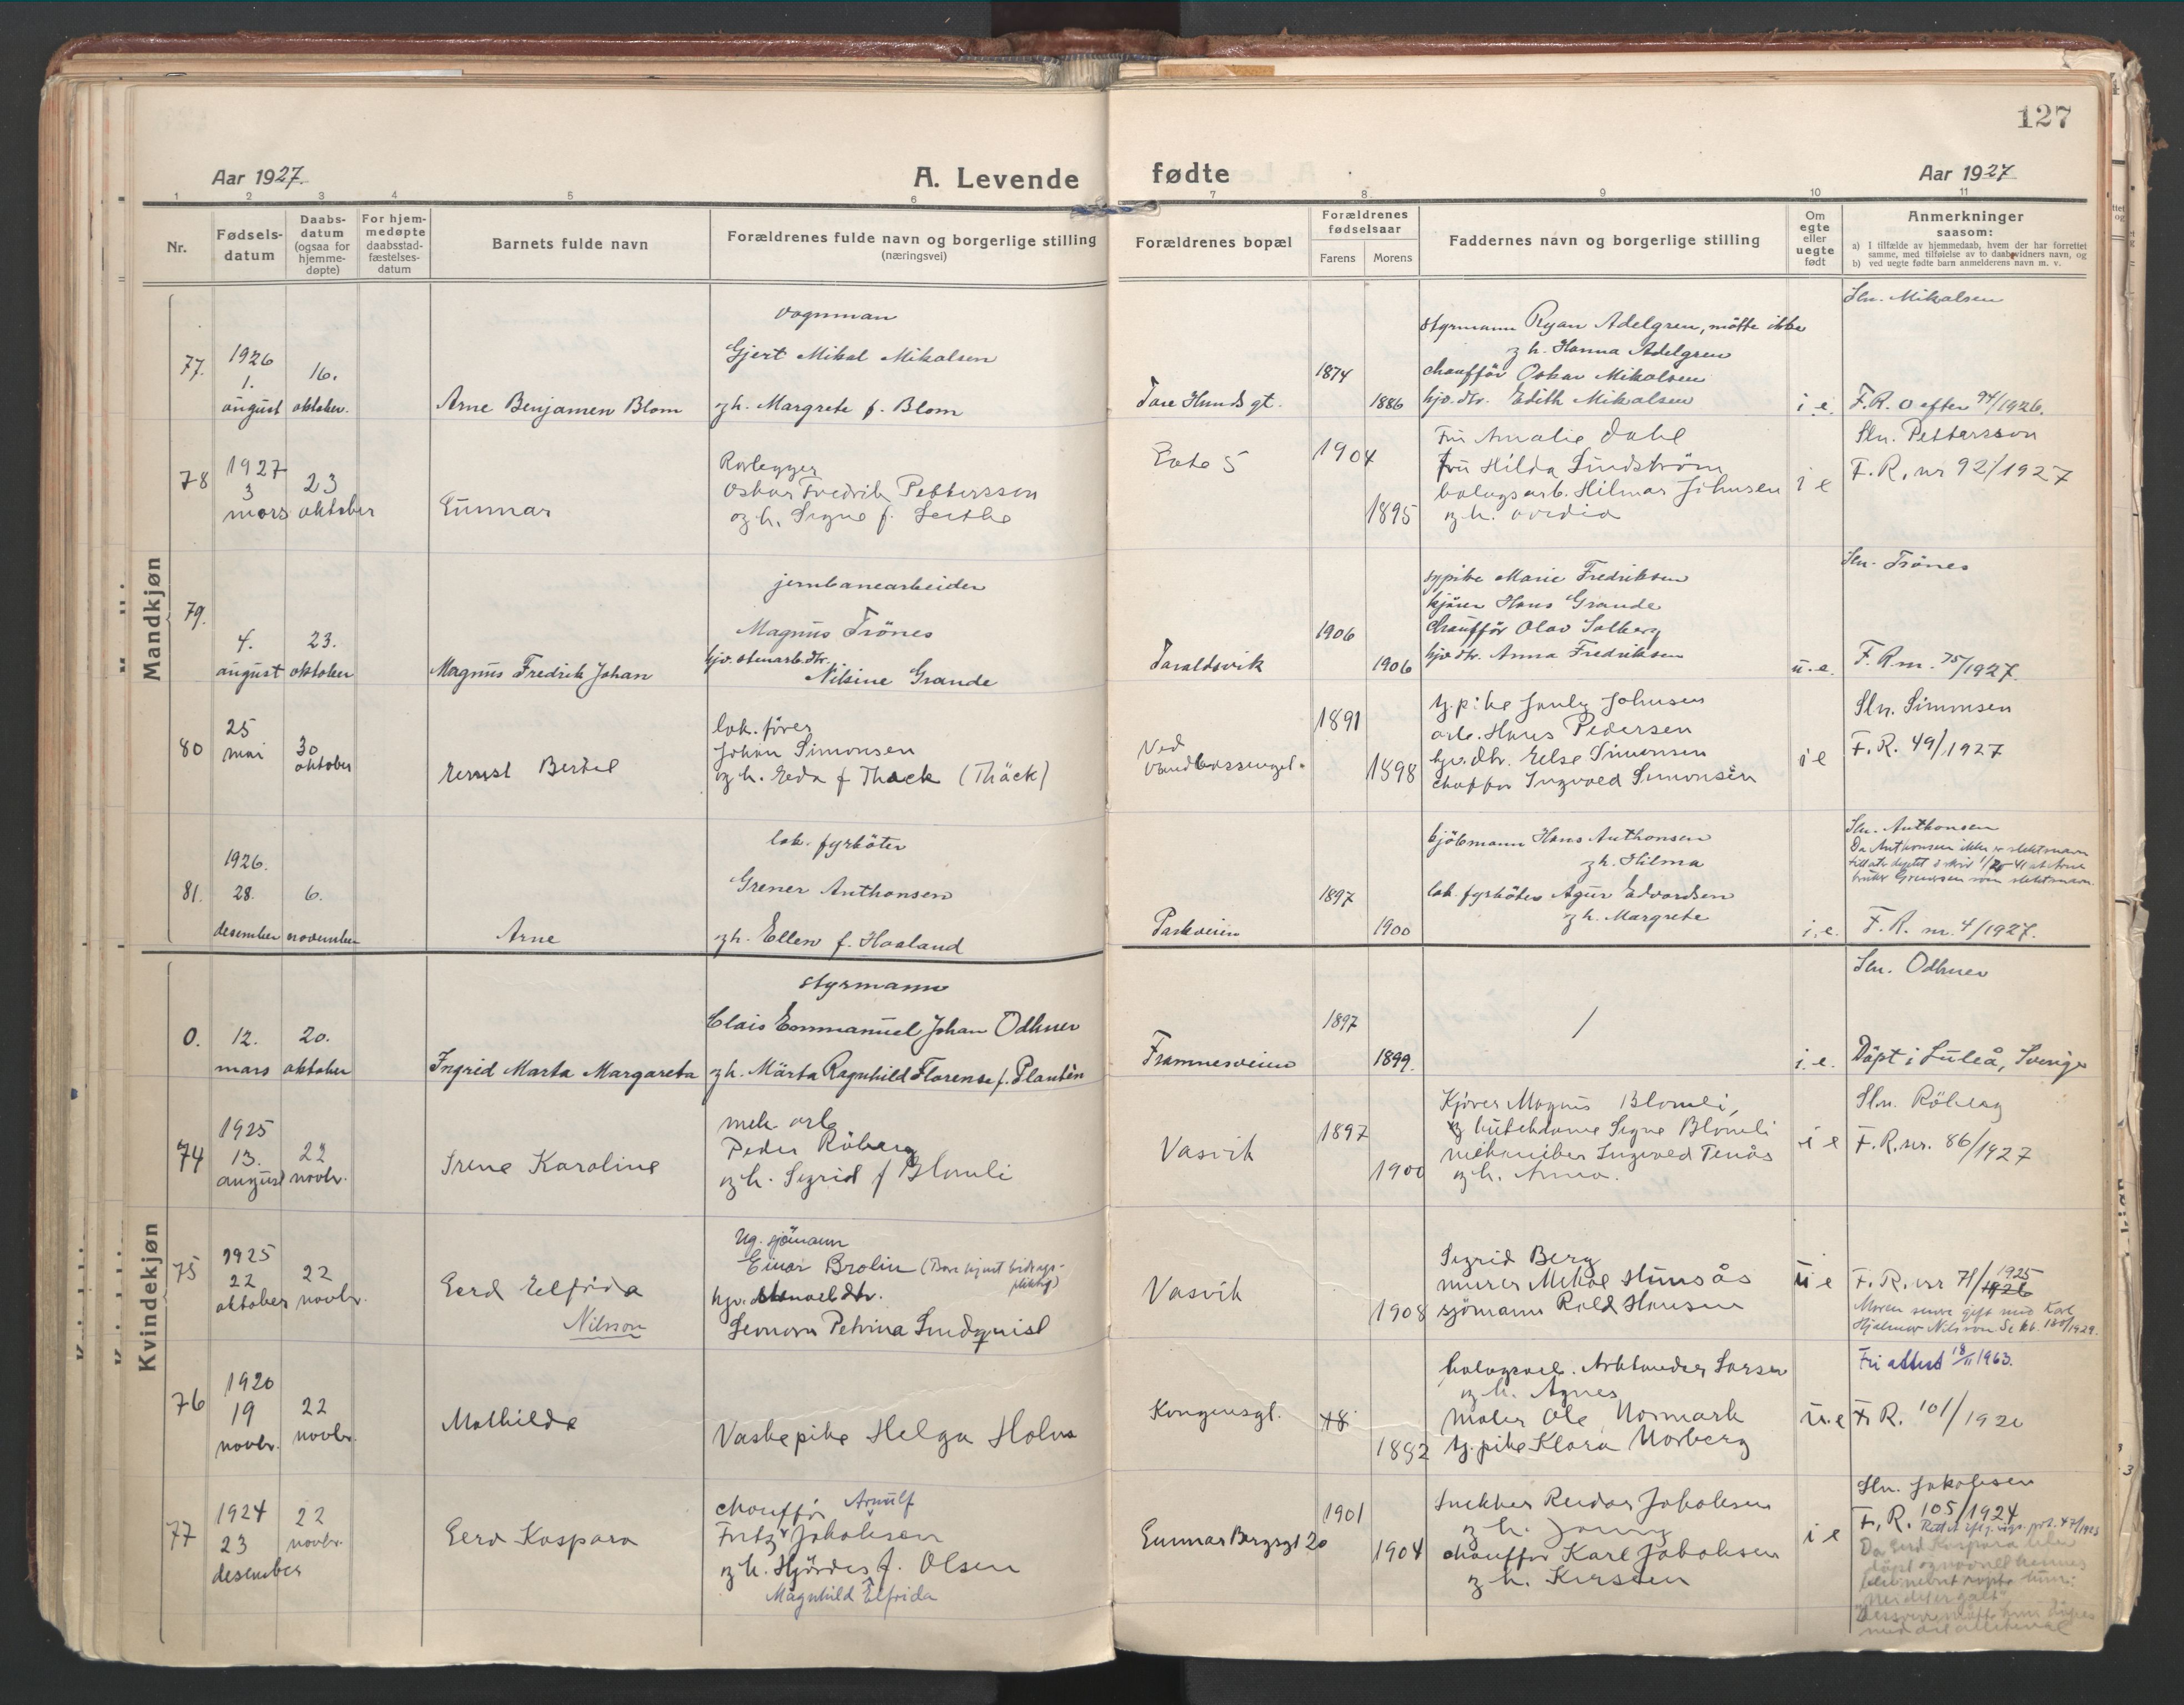 127
Aar 1927.
A. Levende
fødte
Aar 1927
1 2 3 4 5 6 7 8 9 10 11
Nr.
Fødsels-
datum
Daabs-
datum
(ogsaa for
hjemme-
døpte)
For hjem-
medøpte
daabsstad-
fæstelses-
datum
Barnets fulde navn
Forældrenes fulde navn og borgerlige stilling
(næringsvei)
Forældrenes bopæl
Forældrenes
fødselsaar
Farens
Morens
Faddernes navn og borgerlige stilling
Om
egte
eller
uegte
født
Anmerkninger
saasom:
a) I tilfælde av hjemmedaab, hvem der har forrettet
samme, med tilføielse av to daabsvidners navn, og
b) ved uegte fødte barn anmelderens navn m. v.
Mandkjøn
77.
1926
1.
august
16.
oktober.
Arne Benjamen Blom
vognman
Gjert Mikal Mikalsen
og h. Margrete f. Blom
Tore Hunds gt.
1874
1886
styrmann Ryan Adelgren, møtte ikke
og h. Hanna Adelgren
chaufför Oskar Mikalsen
hjv. dtr. Edith Mikalsen
i. e.
Sln. Mikalsen
F.R. 0 efter 94/1926.
78
1927
3
mars
23
oktober
Gunnar
Rørlegger
Oskar Fredrik Pettersson
og h. Signe f.
5
1904
1895
Fru Amalie Dahl
Fru Hilda Lindström
bolagsarb. Hilmar Johnsen
og h.
i e
Sln. Pettersson
F.R. nr 92/1927
79.
4.
august
23.
oktober
Magnus Fredrik Johan
jernbanearbeider
Magnus Trönes
hjv. stenarb. dtr.
Nilsine Grande
Taraldsvik
1906
1906
sypike Marie Fredriksen
kjører Hans Grande
Chaufför Olav Solberg
hjv. dtr. Anna Fredriksen
u. e.
Sln. Trönes
F.R. nr. 75/1927.
80
25
mai
30
oktober
Ernst Bertil
lok. förer
Johan Simonsen
og h. Eda f Thack (Thäck)
Ved
1891
1898
tj. pike Jenly Johnsen
arb. Hans Pedersen
hjv. dtr. Else Simonsen
chaffør Ingvald Simonsen
i e
Sln. Simonsen
F.R. 49/1927
81.
1926.
28.
desember
6.
november
Arne
lok. fyrböter
Grener Anthonsen
og h. Ellen f. Haaland
Parkveien
1897
1900
kjöbmann Hans Anthonsen
og h. Hilma
lok. fyrböter Agur Edvardsen
og h. Margrete
i. e.
Sln. Anthonsen
Da Anthonsen ikke er slektsnavn
bruke Grenersen som slektsnavn.
F.R. nr. 4/1927.
Kvindekjøn
0.
12.
mars
20.
oktober
Ingrid Marta Margareta
styrmann
Clais Emmanuel Johan Odhner
og h. Märta Ragnhild Florense f. Plantén
Framnesveien
1897
1899.
/
i. e.
Sln. Odhner
Döpt i Luleå, Sverige
74
1925
13.
august
22
novbr.
Irene Karoline
mek arb
Peder Röberg
og h. Sigrid f Blomli
Vasvik
1897
1900
Kjører Magnus Blomli,
Signe Blomli
mekaniker Ingvald Tenås
og h. Anna.
i e
Sln. Röberg
F.R. nr. 86/1927
75
1925
22
oktober
22
novbr.
Gerd Elfrida
Nilsson
Ug. sjömann
Einar Brolin (Bare hjnst bidrags-
pliktig)
hjv. dtr.
Leonora Petrina Lindquist
Vasvik
1908
Sigrid Berg
murer Mikal Hunsås
sjömann Rolf Hansen
u e
F.R. nr 71/1925
1926
Moren senere gift med Karl
Hjalmar Nilsson Se kb. 130/1929.
76
1920
19
novbr.
22
novbr.
Mathilde
Vaskepike Helga Holm
Kongensgt.
18
1892
bolagsarb. Larsen
og h. Agnes
Maler Ole Normark
tj. pike Klara Norberg
u. e
Fri attest 18/11 1963.
F.R. 101/1920
77
1924
23
desember
22
novbr.
Gerd Kaspara
chaufför Arnulf
Fritz Jakobsen
og h. Hjördis f. Olsen
Magnhild Elfrida
Gunnar Bergsgt 20
1901
1904
Snekker Reidar Jakobsen
og h. Jenny
chauffør Karl Jakobsen
og h. Kirsten
i e
Sln. Jakobsen
F.R. 105/1924
Da Gerd Kaspara blev
döpt